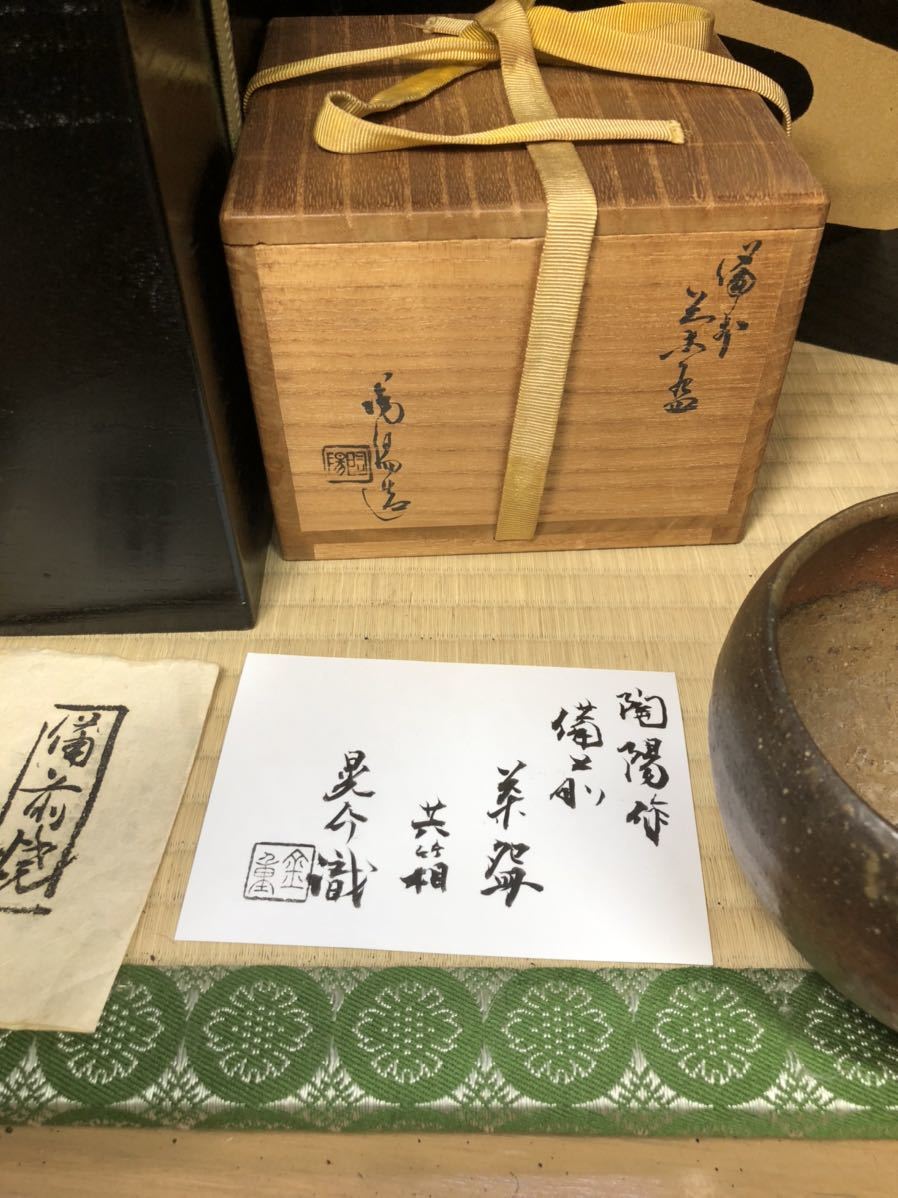 備前
茶盌
陶陽造
陶陽
備前焼
陶陽作
備前
茶盌
共箱
晃介識
金重